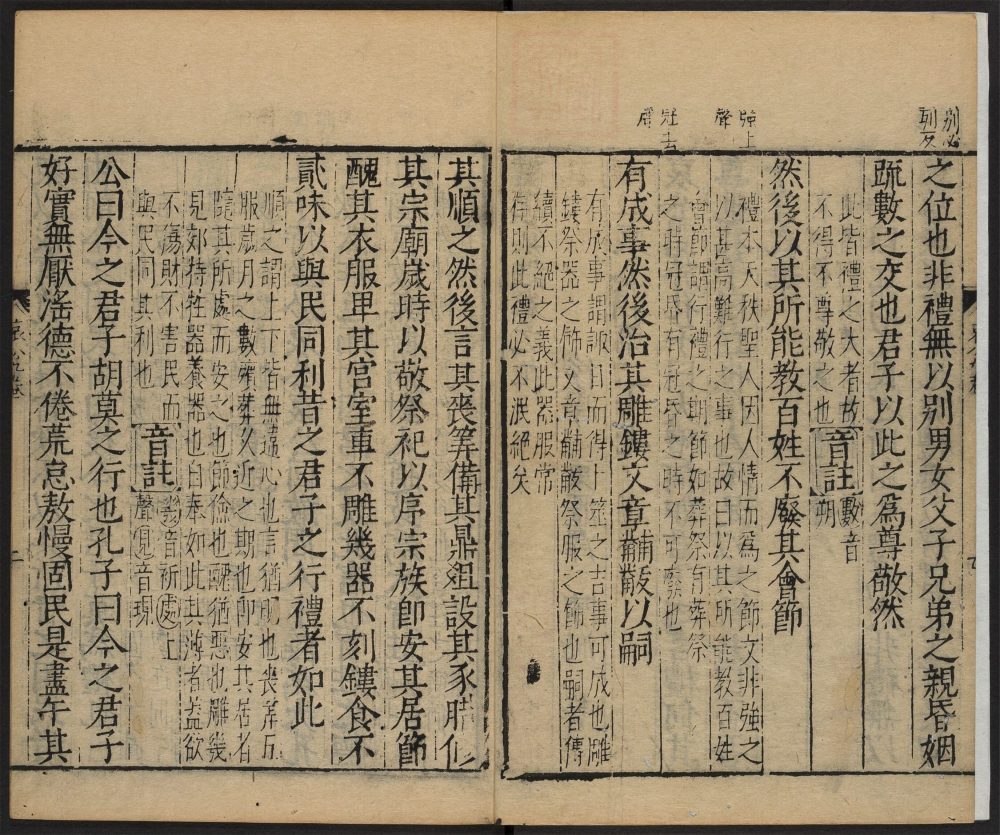 別必
列反
之位也非禮無以別男女父子兄弟之親昏姻
疏數之交也君子以此之為尊敬然
此皆禮之大者故
不得不尊敬之也
音註
數音
朔
然後以其所能教百姓不廢其會節
強上
聲
禮本天秩聖人因人情而為之節文非強之
以甚高難行之事也故曰以其所能教百姓
會節謂行禮之期節如葬祭有葬祭
之時冠昏有冠昏之時不可廢也
冠去
聲
有成事然後治其雕鏤文章黼黻以嗣
有成事謂諏日而得卜筮之吉事可成也雕
鏤祭器之飾文章黼黻祭服之飾也嗣者傳
續不絕之義此器服常
存則此禮必不泯絕矣
其順之然後言其喪筭備其鼎俎設其豕腊脩
其宗廟歲時以敬祭祀以序宗族即安其居節
醜其衣服卑其宮室車不雕幾器不刻鏤食不
貳味以與民同利昔之君子之行禮者如此
順之謂上下皆無違心也言猶明也喪筭五
服歲月之數殯葬久近之期也即安其居者
隨其所處而安之也節儉也醜猶惡也雕幾
見郊特牲器養器也自奉如此其薄者蓋欲
不傷財不害民而
與民同其利也
音註
幾音祈處上
聲見音現
公曰今之君子胡莫之行也孔子曰今之君子
好實無厭淫德不倦荒怠敖慢固民是盡午其